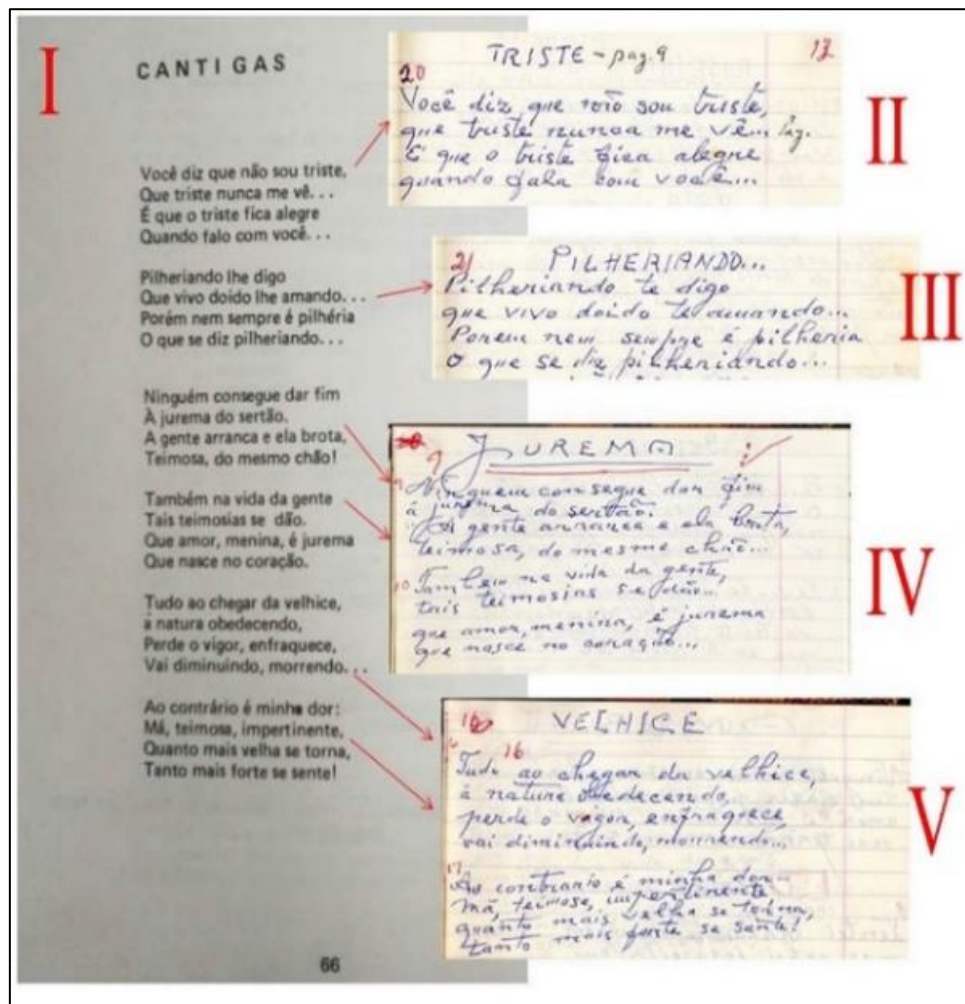 I
CANTIGAS
Você diz que não sou triste,
Que triste nunca me vê...
É que o triste fica alegre
Quando falo com você...
Pilheriando lhe digo
Que vivo doido lhe amando...
Porém nem sempre é pilhéria
O que se diz pilheriando...
Ninguém consegue dar fim
À jurema do sertão.
A gente arranca e ela brota,
Teimosa, do mesmo chão!
Também na vida da gente
Tais teimosias se dão.
Que amor, menina, é jurema
Que nasce no coração.
Tudo ao chegar da velhice,
à natura obedecendo,
Perde o vigor, enfraquece,
Vai diminuindo, morrendo...
Ao contrário é minha dor:
Má, teimosa, impertinente,
Quanto mais velha se torna,
Tanto mais forte se sente!
66
TRISTE - pag. 9
13
20
Você diz que não sou triste,
que triste nunca me vê...
É que o triste fica alegre
quando fala com você...
II
21 PILHERIANDO...
Pilheriando te digo
que vivo doido te amando...
Porem nem sempre é pilheria
O que se diz pilheriando...
III
9
JUREMA
9 Ninguem consegue dar fim
á jurema do sertão.
A gente arranca e ela brota,
teimosa, do mesmo chão...
10 Tambem na vida da gente,
tais teimosias se dão...
que amor, menina, é jurema
que nasce no coração...
IV
VELHICE
16
Tudo ao chegar da velhice,
á natura obedecendo,
perde o vigor, enfraquece,
vai diminuindo, morrendo...
17
Ao contrario é minha dor
má, teimosa, impertinente
quanto mais velha se torna,
tanto mais forte se sente!
V